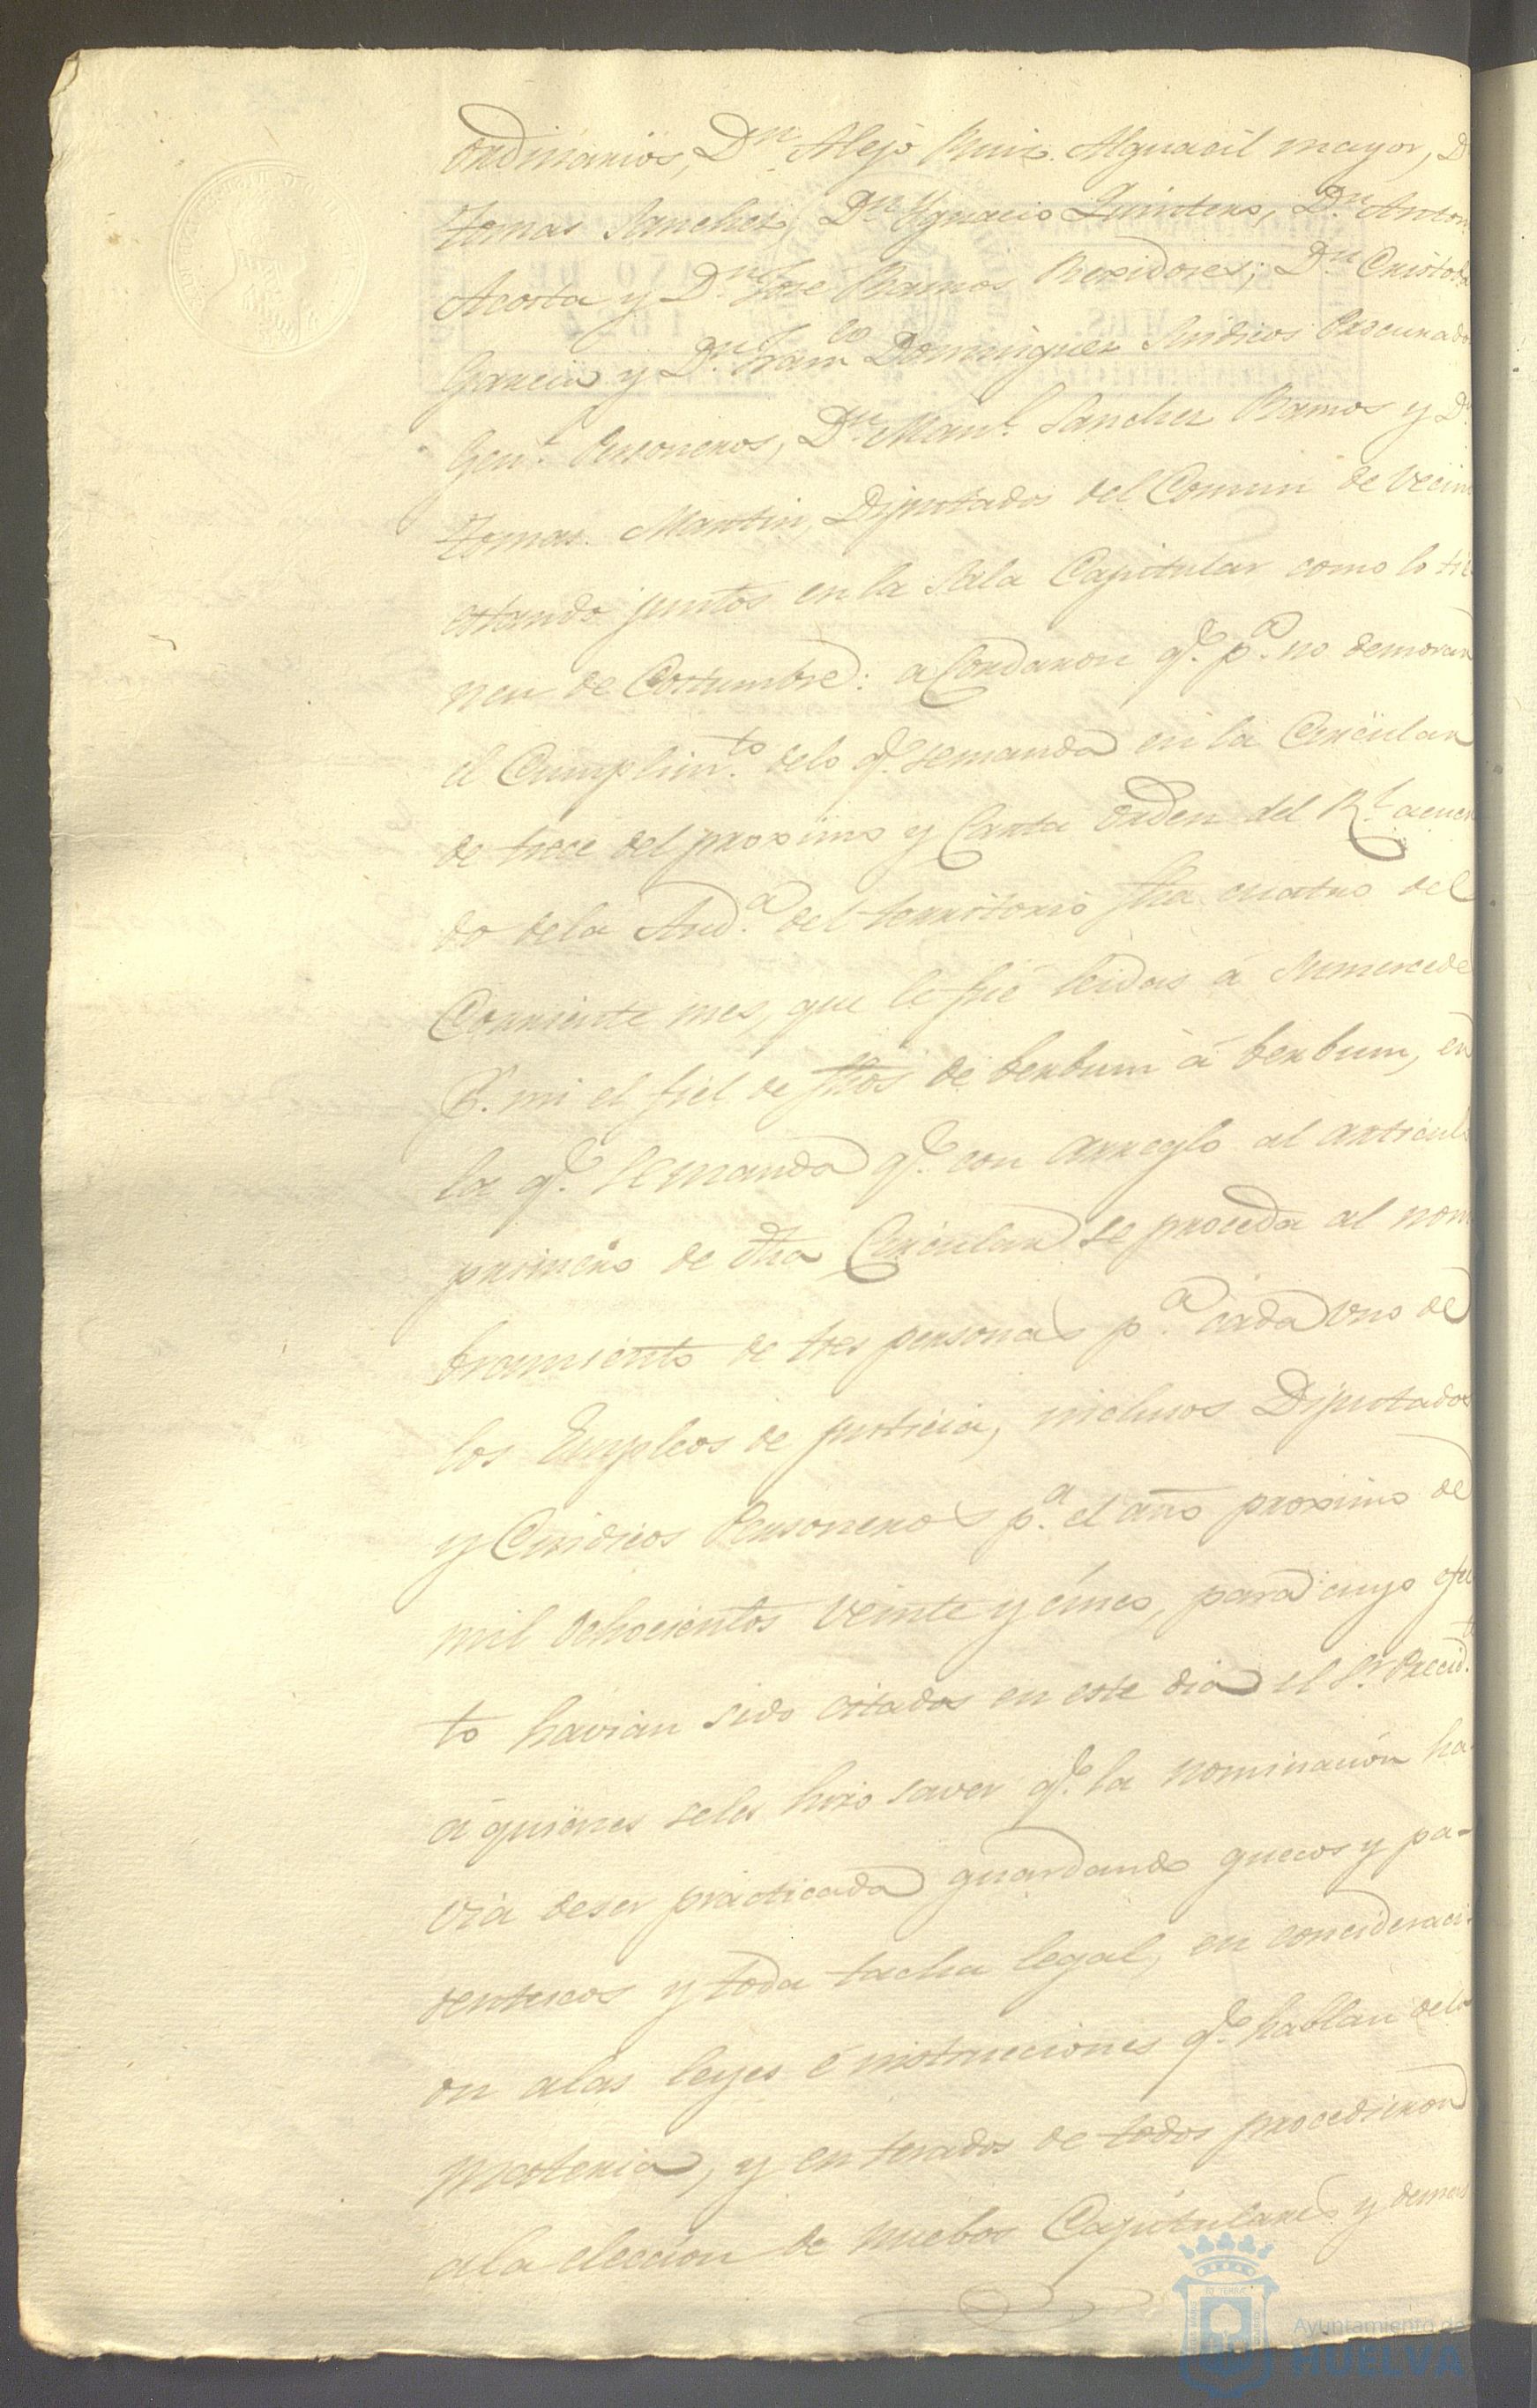 Ordinarios, Dn. Alejo Ruiz. Alguacil mayor, D
Tomas Sanchez, Dn. Ygnacio Quintero, Dn. Anton
Acosta y Dn. Jose Ramos Rexidores; Dn. Cristoba
Garcia y Dn. Franco. Dominguez Sindicos Procurado
Genl. Personeros, Dn. Manl. Sanchez Ramos y Dn.
Tomas Martin, Diputados del Comun de vecin
estando juntos en la Sala Capitular como lo tie
nen de Costumbre: aCordaron qe. pa. no demorar
el Cumplimto. delo qe. semanda en la Circular
de trece del proximo y Carta orden del Rl. acuer
do dela Auda. del territorio fha cuatro del
Corriente mes, que le fué leidas á Sumercede
Pr. mi el fiel de fhos de berbum á berbum, en
la qe. semanda qe. con arreglo al articulo
primero de dha Circular se proceda al nom
bramiento de tres personas pa. cada uno de
los Empleos de justicia, inclusos Diputados
y Cindicos Personeros pa. el año proximo de
mil ochocientos veinte y cinco, para cuyo efec
to havian sido citados en este dia el Sr. Precidte.
á quienes seles hizo saver qe. la nominacion ha
via deser practicada guardando guecos y pa-
rentescos y toda tacha legal, en concideraci-
on alas leyes é instrucciones qe. hablan dela
materia, y enterados de todos procedieron
ala eleccion de nuebos Capitulares y demas
Ayuntamiento de
HUELVA